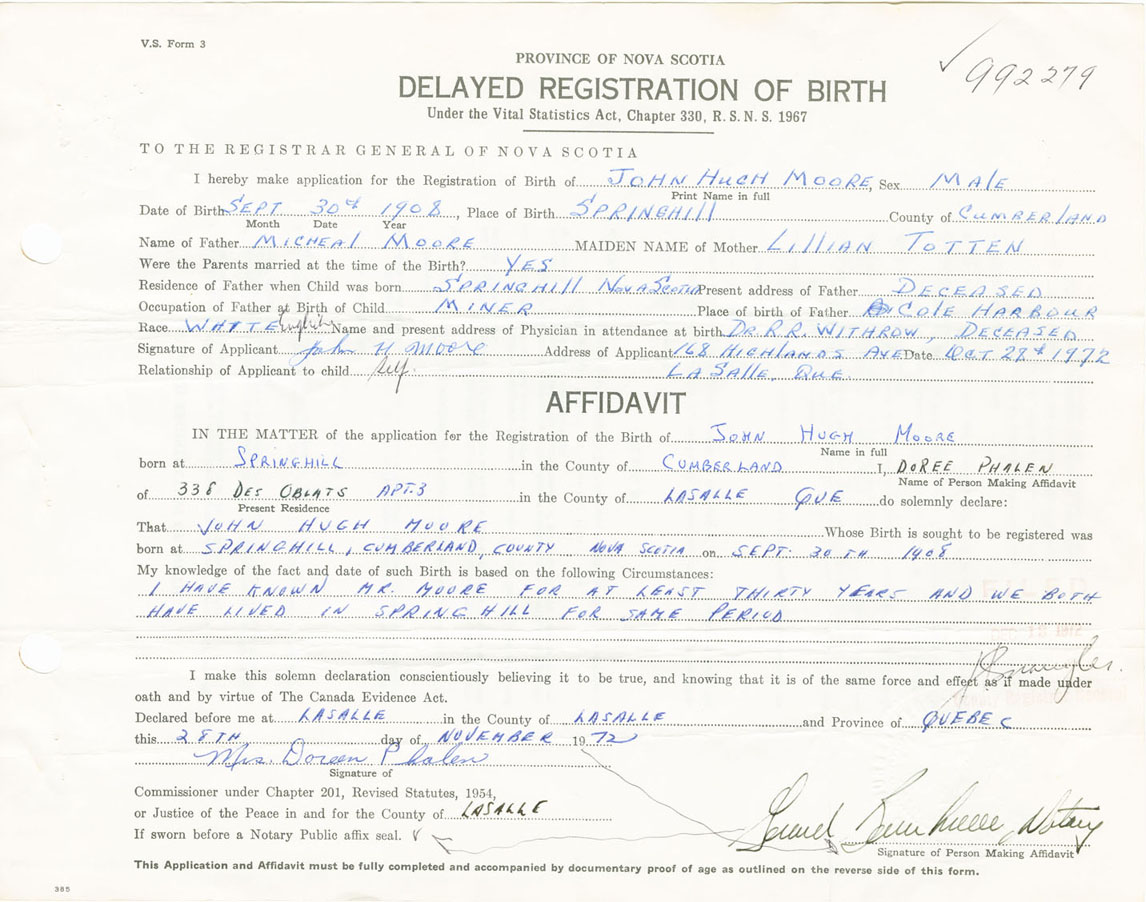 V.S. Form 3
PROVINCE OF NOVA SCOTIA
992279
DELAYED REGISTRATION OF BIRTH
Under the Vital Statistics Act, Chapter 330, R. S. N. S. 1967
TO THE REGISTRAR GENERAL OF NOVA SCOTIA
I hereby make application for the Registration of Birth of JOHN HUGH MOORE, Sex MALE
Print Name in full
Date of Birth SEPT 30th 1908, Place of Birth SPRINGHILL County of CUMBERLAND
Month Date Year
Name of Father MICHEAL MOORE MAIDEN NAME of Mother LILLIAN TOTTEN
Were the Parents married at the time of the Birth? YES
Residence of Father when Child was born SPRINGHILL NOVA SCOTIA Present address of Father DECEASED
Occupation of Father at Birth of Child MINER Place of birth of Father COLE HARBOUR
Race WHITE English Name and present address of Physician in attendance at birth DR. R.R. WITHROW, DECEASED
Signature of Applicant John H Moore Address of Applicant 168 HIGHLANDS AVE Date OCT 27th 1972
Relationship of Applicant to child self. LASALLE, QUE.
AFFIDAVIT
IN THE MATTER of the application for the Registration of the Birth of JOHN HUGH MOORE
Name in full
born at SPRINGHILL in the County of CUMBERLAND I, DOREE PHALEN
Name of Person Making Affidavit
of 338 DES OBLATS APT.3 in the County of LASALLE QUE do solemnly declare:
Present Residence
That JOHN HUGH MOORE Whose Birth is sought to be registered was
born at SPRINGHILL, CUMBERLAND, COUNTY NOVA SCOTIA on SEPT. 30TH 1908
My knowledge of the fact and date of such Birth is based on the following Circumstances:
I HAVE KNOWN MR. MOORE FOR AT LEAST THIRTY YEARS AND WE BOTH
HAVE LIVED IN SPRINGHILL FOR SAME PERIOD
I make this solemn declaration conscientiously believing it to be true, and knowing that it is of the same force and effect as if made under
oath and by virtue of The Canada Evidence Act.
Declared before me at LASALLE in the County of LASALLE and Province of QUEBEC
this 28TH day of NOVEMBER 1972
Mrs. Doreen Phalen
Signature of
Commissioner under Chapter 201, Revised Statutes, 1954,
or Justice of the Peace in and for the County of LASALLE
If sworn before a Notary Public affix seal.
Notary
Signature of Person Making Affidavit
This Application and Affidavit must be fully completed and accompanied by documentary proof of age as outlined on the reverse side of this form.
385